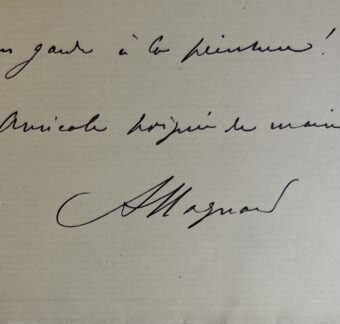 garde à la peinture!
Amicale poignée de main
AMagnard